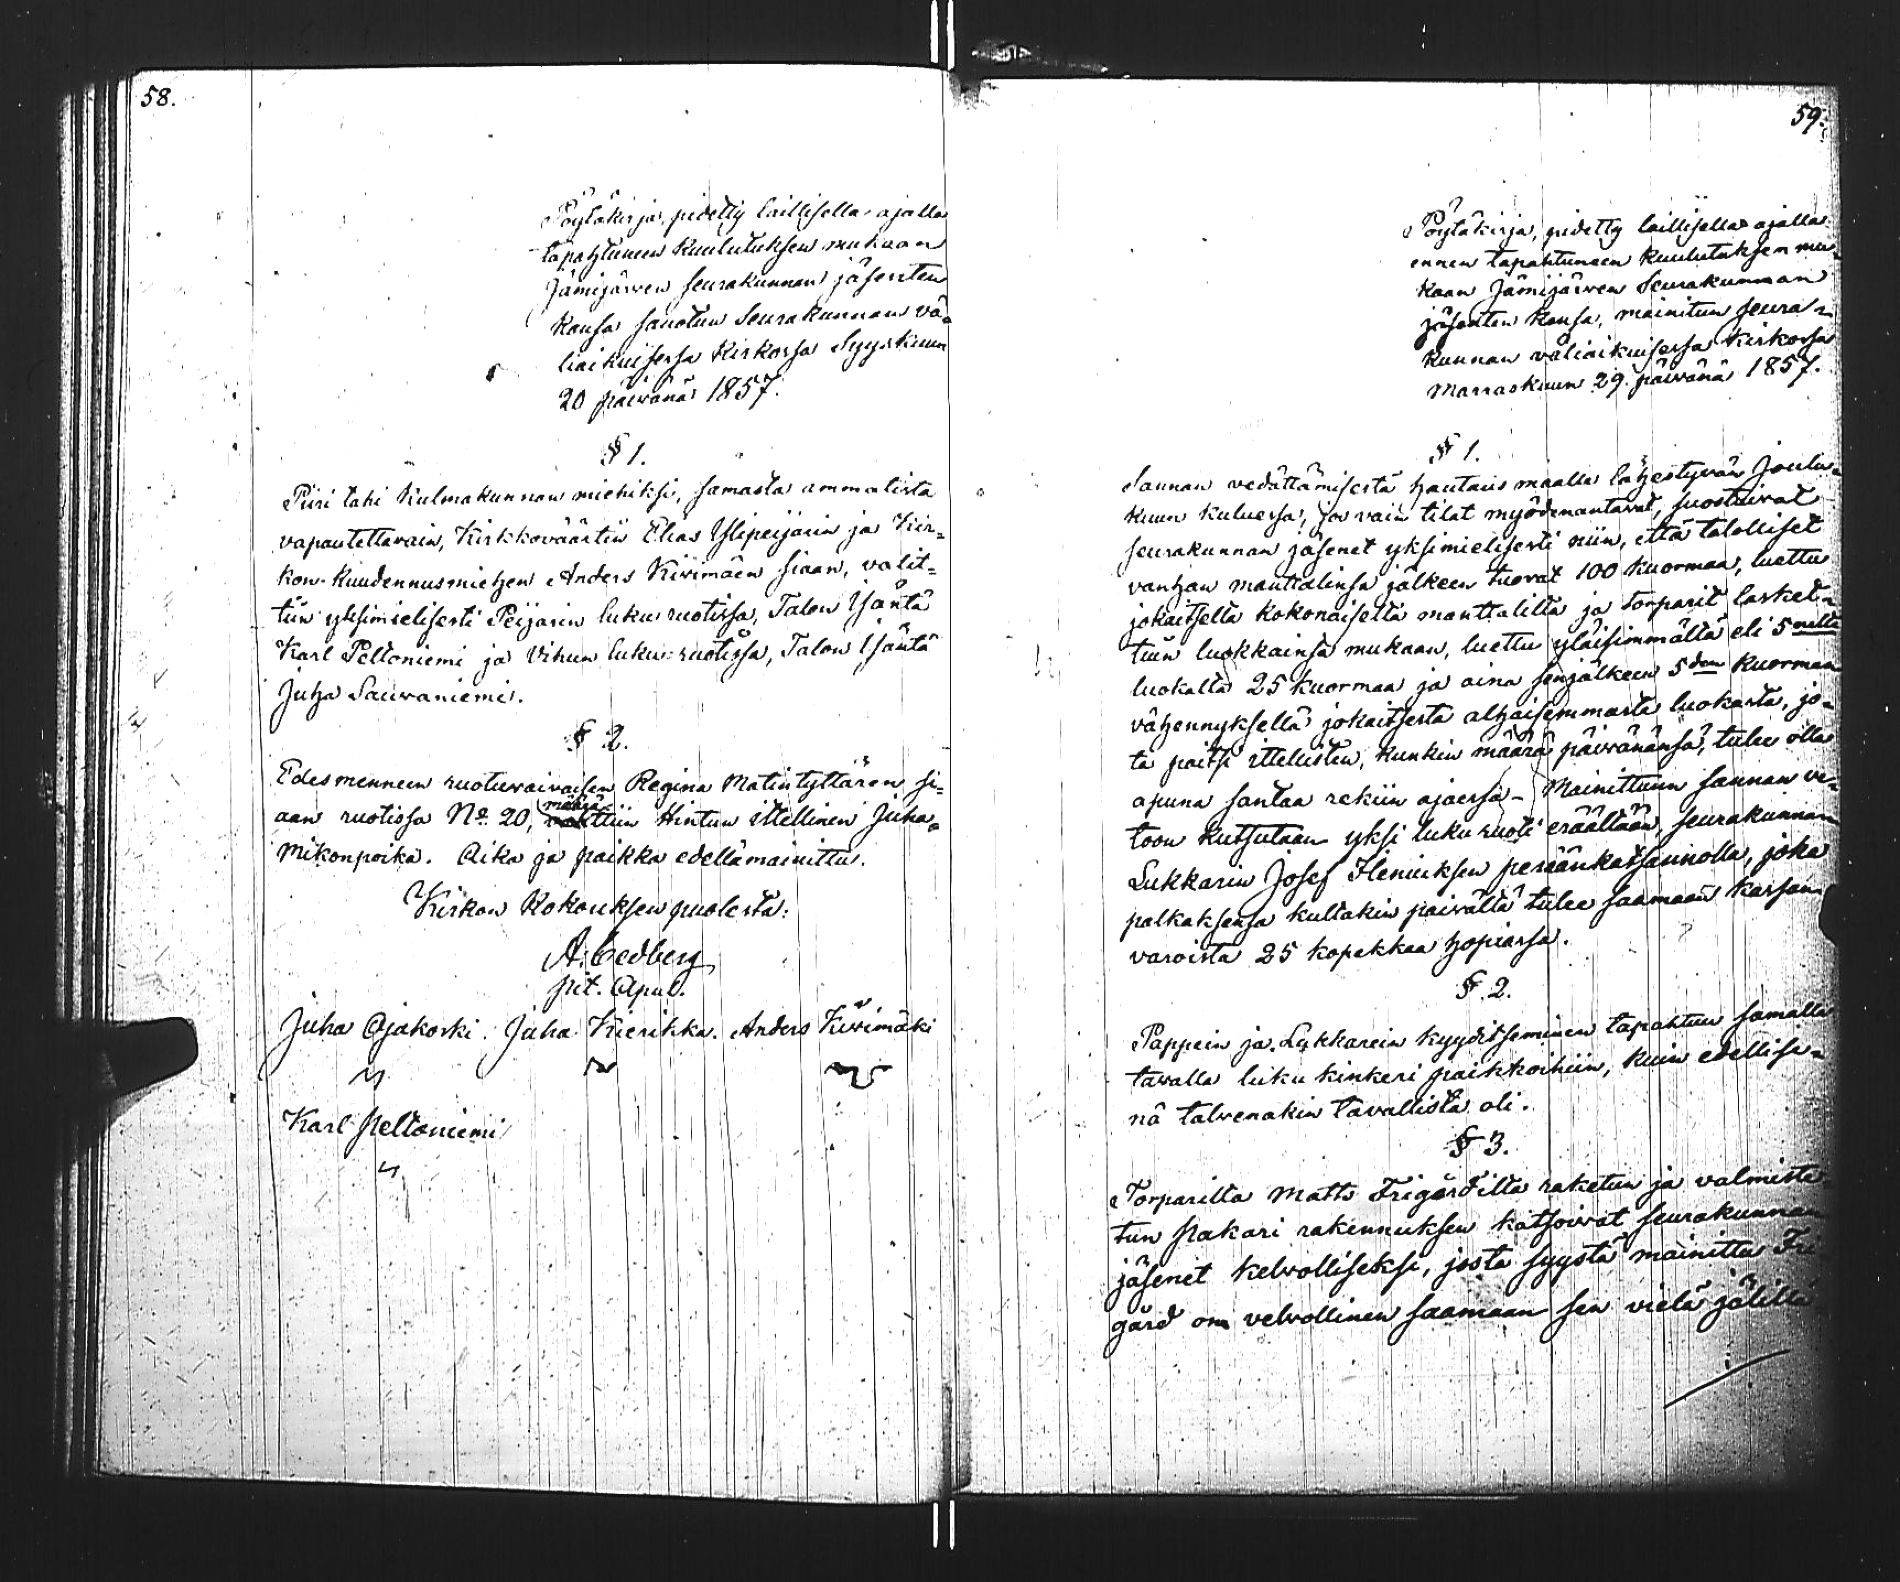 58.
Pöytäkirja, pidetty laillisella ajalla
tapahtuneen kuulutuksen mukaan
Jämijärven seurakunnan jäsenten
kansa sanotun Seurakunnan vä-
liaikuisessa Kirkossa Syyskuun
20 päivänä 1857.
§ 1.
Piiri tahi kulmakunnan miehiksi, samasta ammatista
vapautettavain, Kirkkoväärtin Elias Ylipeijarin ja Kir-
kon kuudennusmiehen Anders Kivimäen siaan, valit-
tiin yksimielisesti Peijarin luku ruotissa, Talon Isäntä
Karl Peltoniemi ja Vihun luku-ruotissa, Talon Isäntä
Juha Sauvaniemi.
§ 2.
Edesmenneen ruotuvaivaisen Regina Matintyttären si-
aan ruotissa No 20, määrättiin Hintun itellinen Juha
Mikonpoika. Aika ja paikka edellämainittu.
Kirkon Kokouksen puolesta:
A. Cedberg
pit. Apul.
Juha Ojakoski. Juha Kierikka. Anders Kivimäki
Karl Peltoniemi
59.
Pöytäkirja, pidetty laillisella ajalla
ennen tapahtuneen kuulutuksen mu-
kaan Jämijärven Seurakunnan
jäsenten kansa, mainitun seura-
kunnan väliaikuisessa kirkossa
Marraskuun 29 päivänä 1857.
§ 1.
Sannan vedättämisestä hautausmaalla lähestyvän Joulu-
kuun kuluessa, jos vain tilat myödenantavat, suostuivat
seurakunnan jäsenet yksimielisesti niin, että talolliset
vanhan manttalinsa jälkeen tuovat 100 kuormaa, luettu
jokaitselta kokonaiselta manttalilta ja torparit lasket-
tiin luokkainsa mukaan, luettu yläisimmältä eli 5neltä
luokalta 25 kuormaa ja aina senjälkeen 5den kuorman
vähennyksellä jokaitsesta alhaisemmasta luokasta, jo-
ta paitsi itellisten, kunkin määrä päivänänsä, tulee olla
apuna santaa rekiin ajaessa - Mainittuun sannan ve-
toon kutsutaan yksi luku ruoti erältään, seurakunnan
Lukkarin Josef Fleniuksen peräänkatsannolla, joka
palkaksensa kultakin päivältä tulee saamaan kassan
varoista 25 kopekkaa hopiassa.
§. 2.
Pappein ja Lukkarein kyyditseminen tapahtuu samalla
tavalla luku kinkeri paikkoihiin, kuin edellise-
nä talvenakin tavallista oli.
§ 3.
Torparilta Matts Frigårdilta raketun ja valmiste-
tun Pakari rakennuksen katsoivat seurakunnan
jäsenet kelvolliseksi, josta syystä mainittu Fri-
gård on velvollinen saamaan sen vielä jälillä